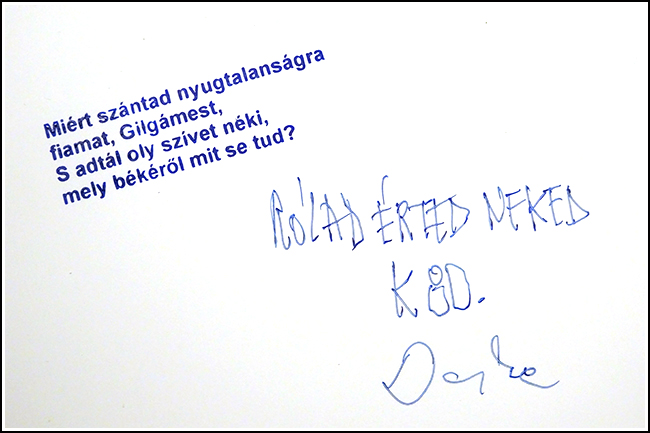 Miért szántad nyugtalanságra
fiamat, Gilgámest,
S adtál oly szívet néki,
mely békéről mit se tud?
RÓLAD ÉRTED NEKED